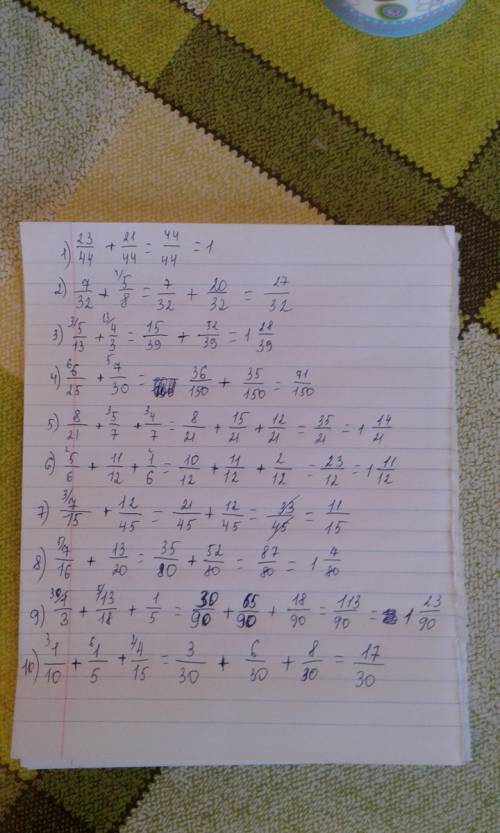 1) 23/44 + 21/44 = 44/44 = 1
2) 7/32 + 4/5/8 = 7/32 + 20/32 = 27/32
3) 3/5/13 + 13/4/3 = 15/39 + 52/39 = 1 28/39
4) 6/6/25 + 5/7/30 = 36/150 + 35/150 = 71/150
5) 8/21 + 3/5/7 + 3/4/7 = 8/21 + 15/21 + 12/21 = 35/21 = 1 14/21
6) 2/5/6 + 11/12 + 2/1/6 = 10/12 + 11/12 + 2/12 = 23/12 = 1 11/12
7) 3/7/15 + 12/45 = 21/45 + 12/45 = 33/45 = 11/15
8) 5/7/16 + 13/20 = 35/80 + 52/80 = 87/80 = 1 7/80
9) 30/1/3 + 5/13/18 + 1/5 = 30/90 + 65/90 + 18/90 = 113/90 = 1 23/90
10) 3/1/10 + 6/1/5 + 2/4/15 = 3/30 + 6/30 + 8/30 = 17/30